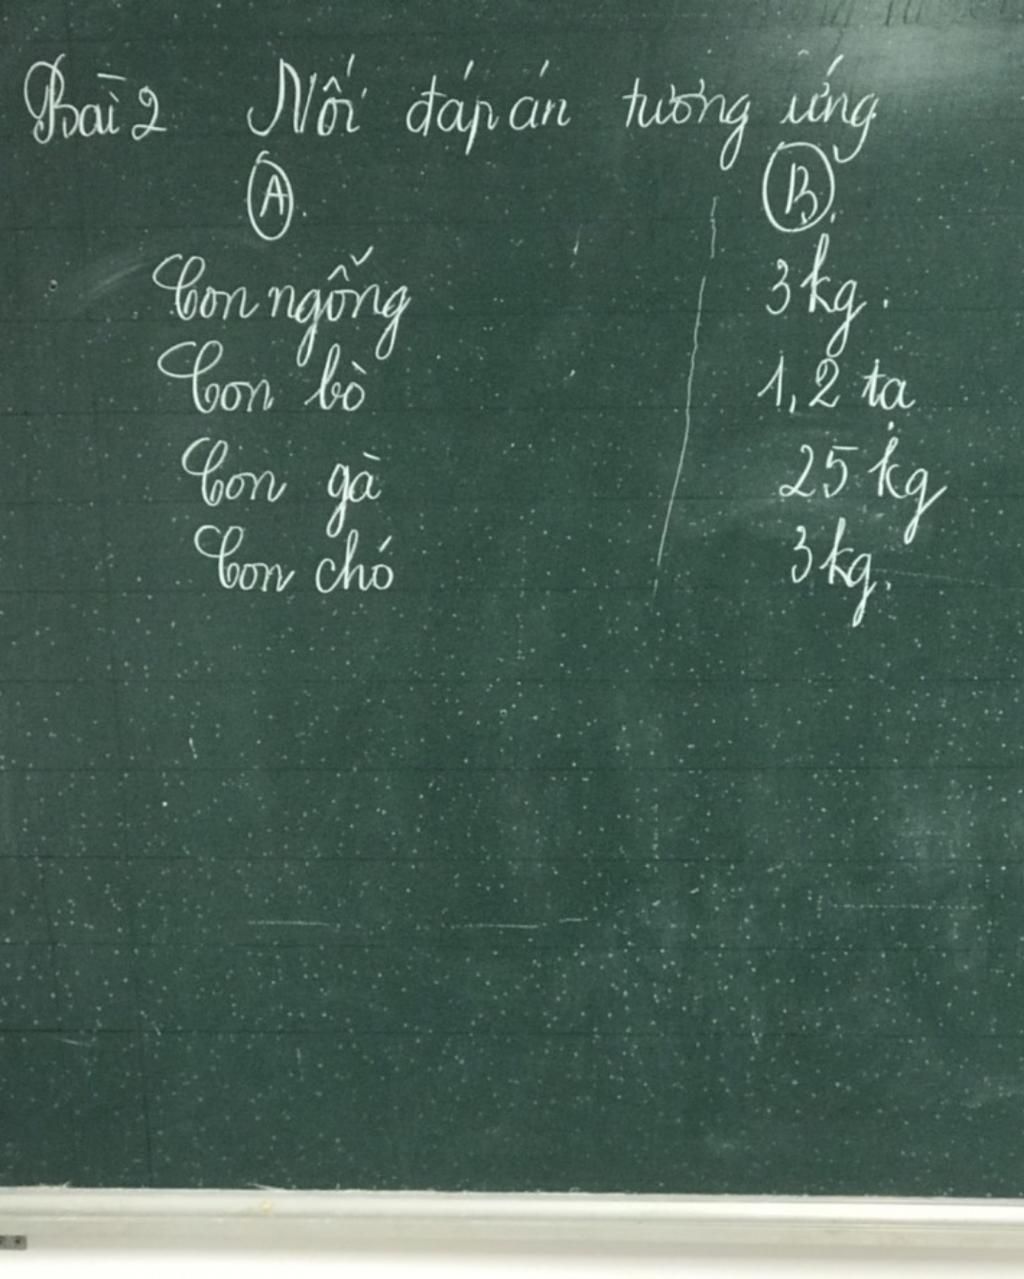 Bài 2 Nối đáp án tương ứng
A. B.
Con ngỗng 3kg.
Con bò 1,2 tạ
Con gà 25 kg
Con chó 3kg.